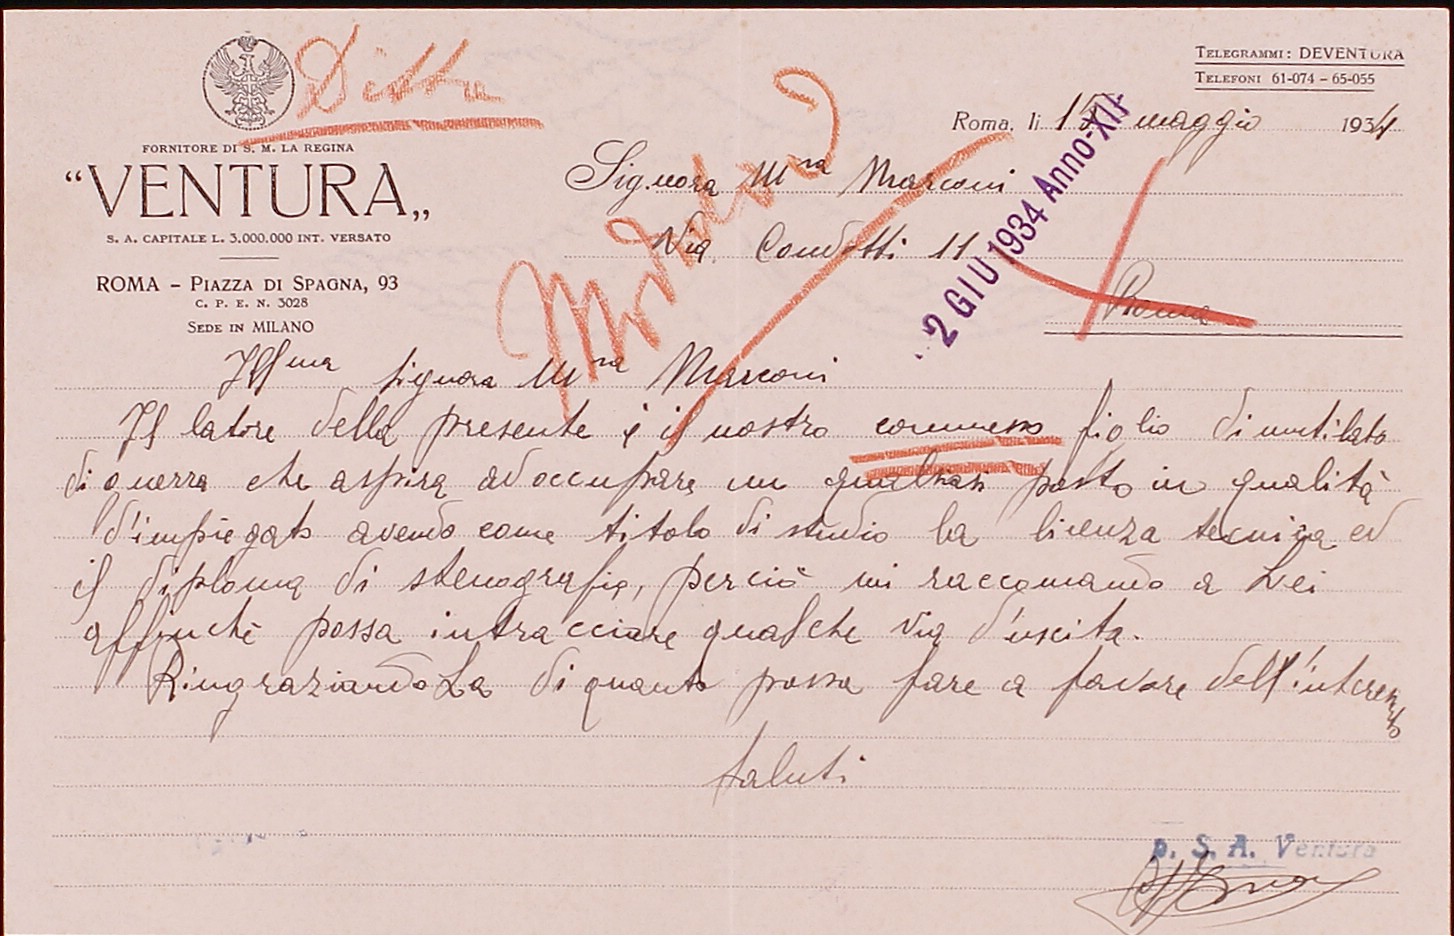 Ditta
TELEGRAMMI: DEVENTURA
TELEFONI 61-074 – 65-055
FORNITORE DI S. M. LA REGINA
"VENTURA„
S. A. CAPITALE L. 3.000.000 INT. VERSATO
ROMA – PIAZZA DI SPAGNA, 93
C. P. E. N. 3028
SEDE IN MILANO
Roma, li maggio 1934
2 GIU 1934 Anno XII
Signora Mra Marconi
Via Condotti 11
Roma
Illma Signora Mra Marconi
Il latore della presente è il nostro commesso figlio di mutilato
di guerra che aspira ad occupare un qualsiasi posto in qualità
d'impiegato avendo come titolo di studio la licenza tecnica ed
il diploma di stenografia, perciò mi raccomando a Lei
affinchè possa intracciare qualche via d'uscita.
RingraziandoLa di quanto possa fare a favore dell'interessato
Saluti
p. S. A. Ventura